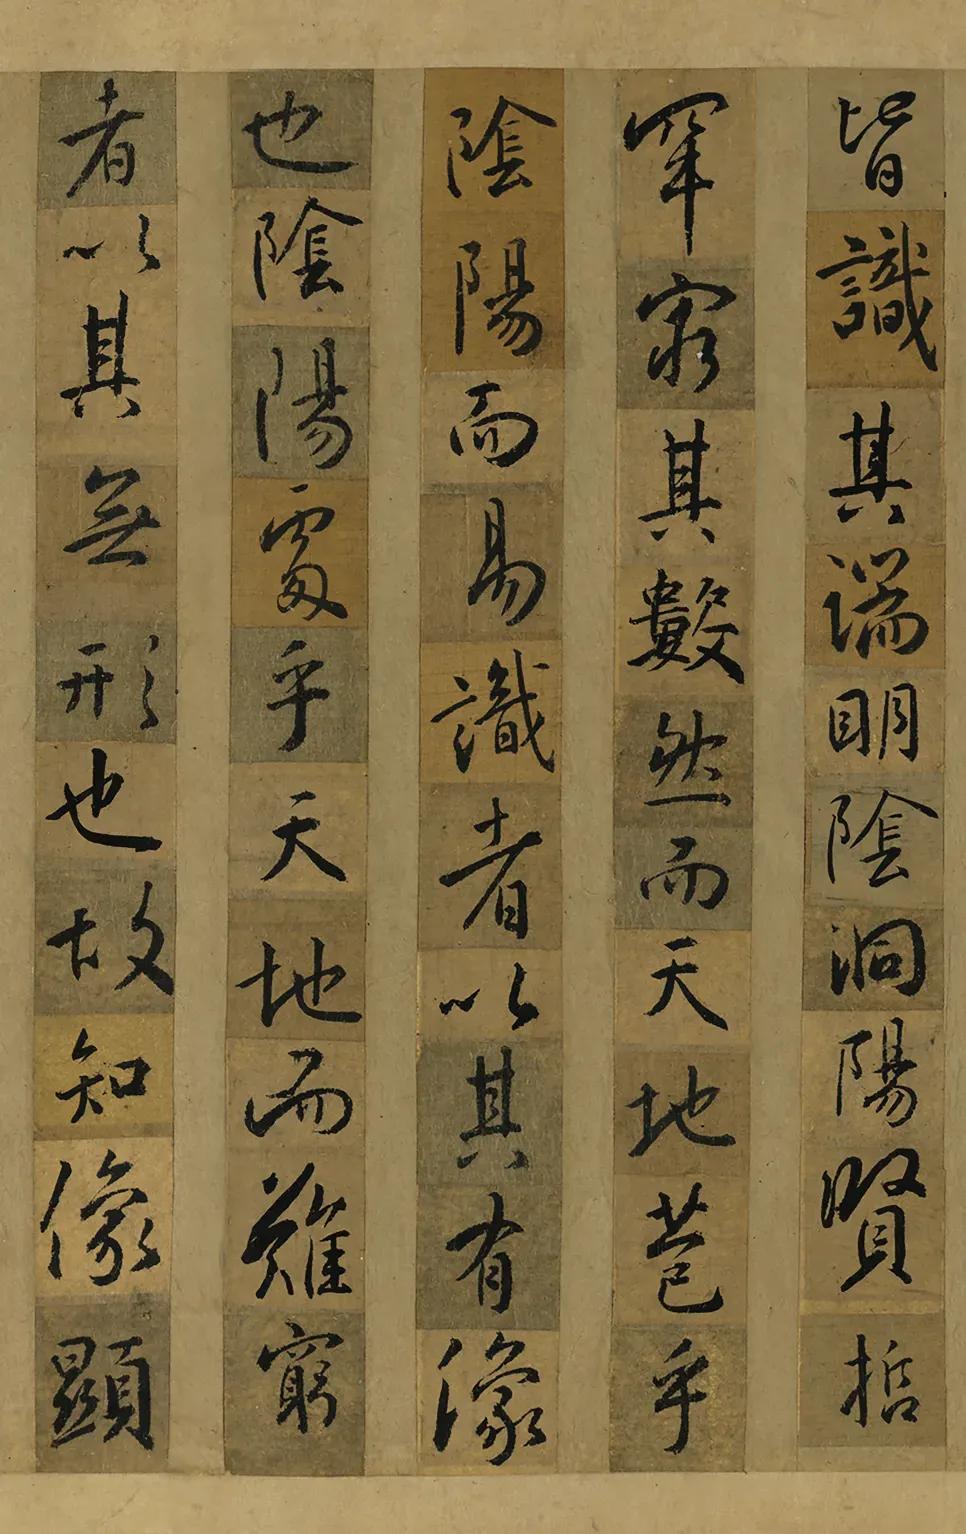 皆識其端明陰洞陽賢哲
罕窮其數然而天地苞乎
陰陽而易識者以其有像
也陰陽處乎天地而難窮
者以其無形也故知像顯